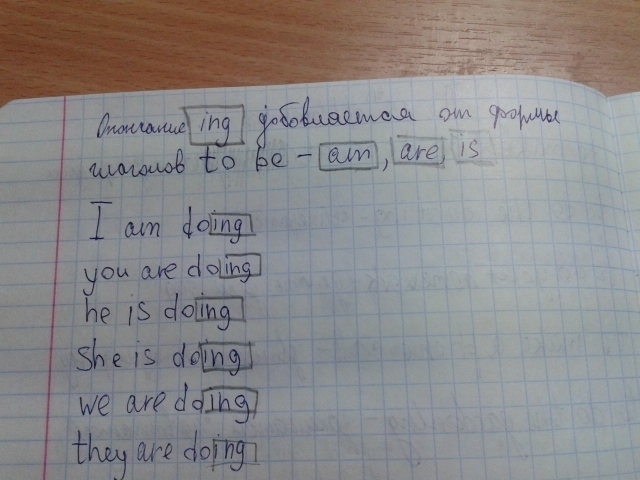 Окончание ing добовляется от формы
глаголов to be - am, are, is
I am doing
you are doing
he is doing
She is doing
we are doing
they are doing